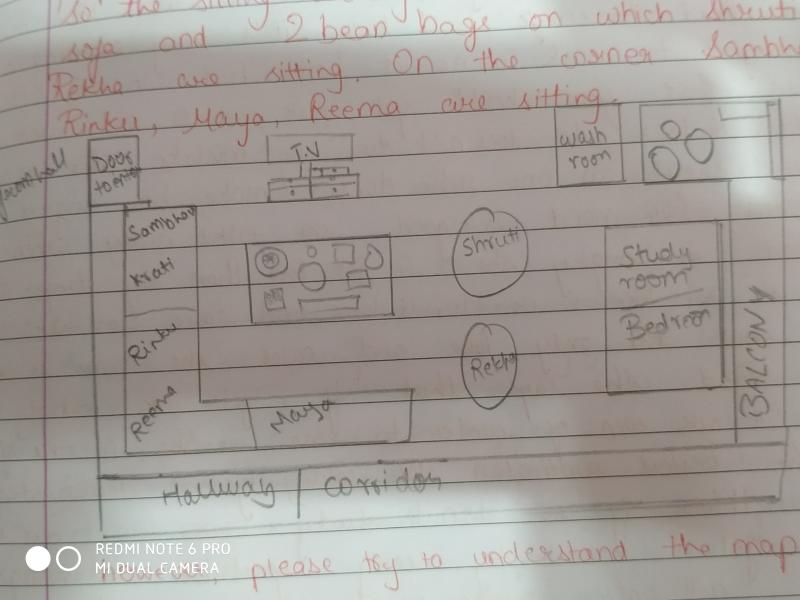 So the sitting
sofa and 2 bean bags on which Shruti
Rekha are sitting. On the corner Sambha
Rinku, Maya, Reema are sitting.
Door
to enter
T.V
wash
room
Sambhav
Krati
Rinku
Reema
Maya
Shruti
Rekha
Study
room
Bedroom
BALCONY
Hallway | corridor
REDMI NOTE 6 PRO
MI DUAL CAMERA
please try to understand the map